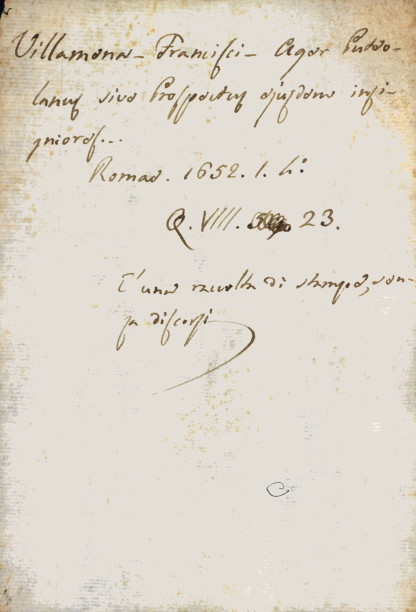 Villamena - Francisci - Ager Puteo-
lanus sive Prospectus ejusdem insi-
gniores...
Romae. 1652. 1. 4°
Q. VIII. 23.
È una raccolta di stampe, sen-
za discorsi